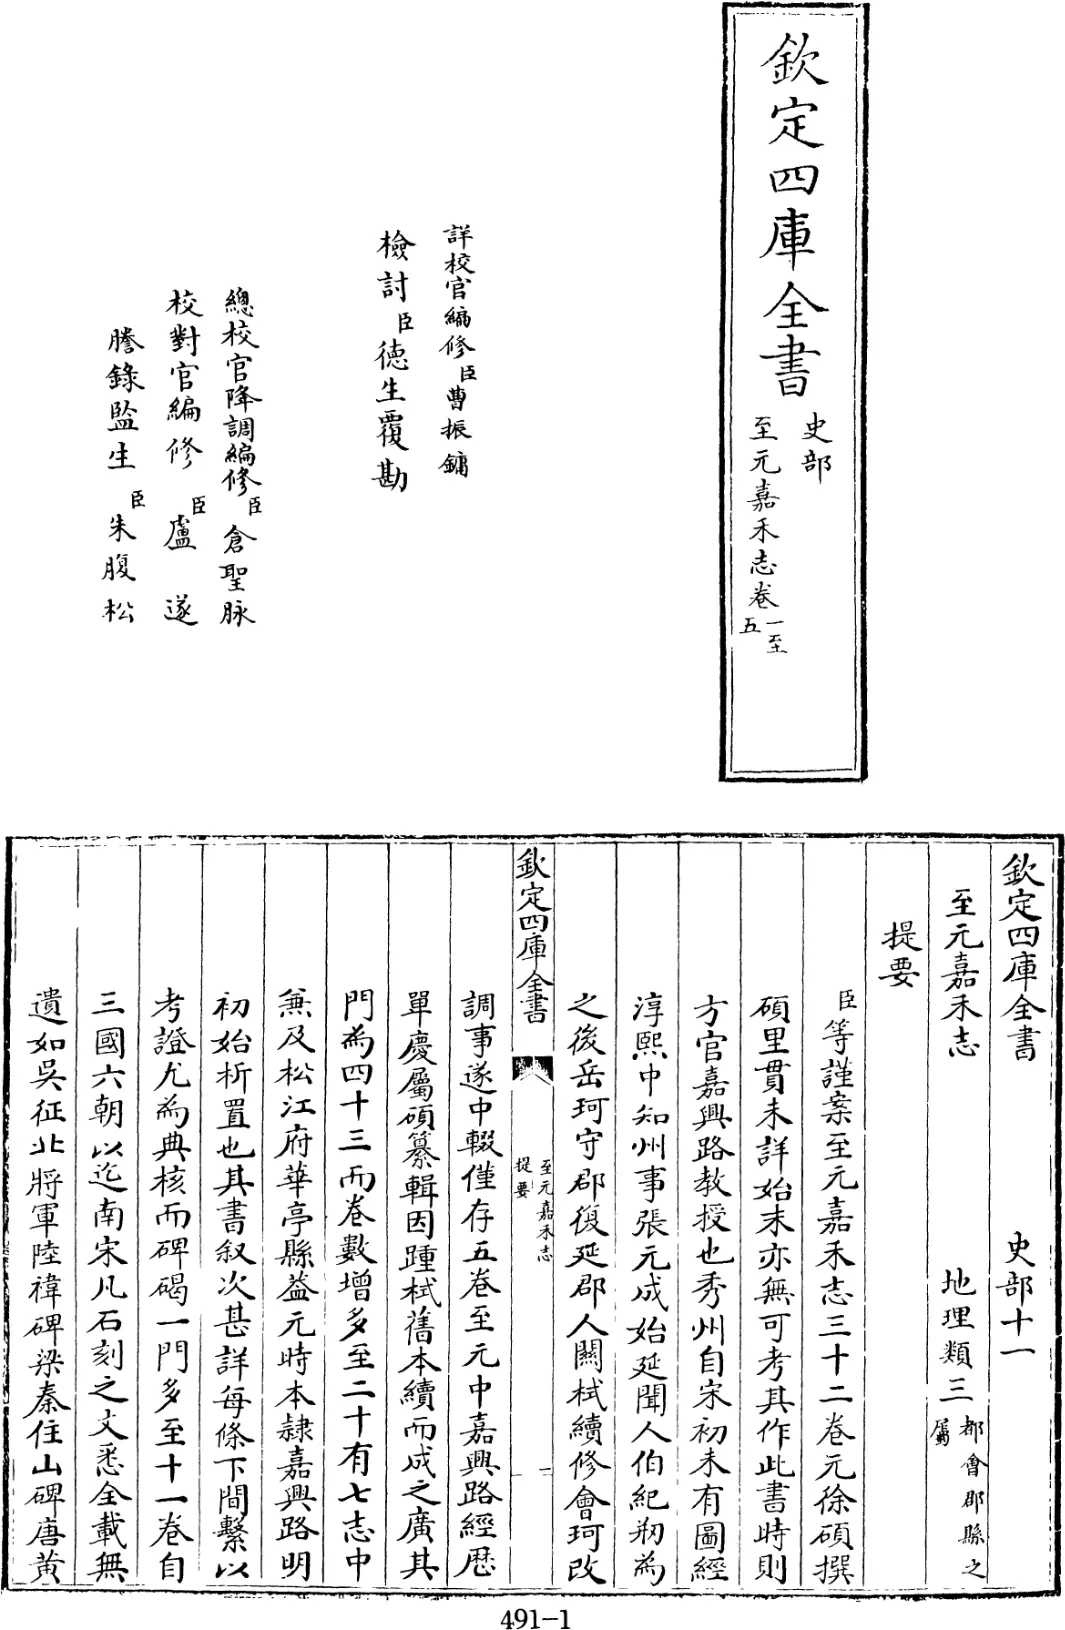 欽定四庫全書
史部
至元嘉禾志卷一至五
詳校官編修臣曹振鏞
檢討臣德生覆勘
總校官降調編修臣倉聖脉
校對官編修臣盧遂
謄錄監生臣朱腹松
欽定四庫全書 史部十一
至元嘉禾志 地理類三都會郡縣之屬
提要
臣等謹案至元嘉禾志三十二卷元徐碩撰
碩里貫未詳始末亦無可考其作此書時則
方官嘉興路教授也秀州自宋初未有圖經
淳熙中知州事張元成始延聞人伯紀剏為
之後岳珂守郡復延郡人關栻續修會珂改
欽定四庫全書
至元嘉禾志
提要
一
調事遂中輟僅存五卷至元中嘉興路經歷
單慶屬碩纂輯因踵栻舊本續而成之廣其
門為四十三而卷數增多至二十有七志中
兼及松江府華亭縣葢元時本隸嘉興路明
初始析置也其書叙次甚詳每條下間繫以
考證尤為典核而碑碣一門多至十一卷自
三國六朝以迄南宋凡石刻之文悉全載無
遺如吳征北將軍陸禕碑梁秦住山碑唐黄
491-1